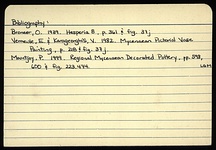 Bibliography:
Broneer, O. 1939. Hesperia 8, p. 361 & fig. 37j
Vermeule, E. & Karageorghis, V. 1982. Mycenaean Pictorial Vase
Painting, p. 213 & fig. 37j.
Mountjoy, P. 1999. Regional Mycenaean Decorated Pottery, pp. 598,
600 & fig. 223.474.